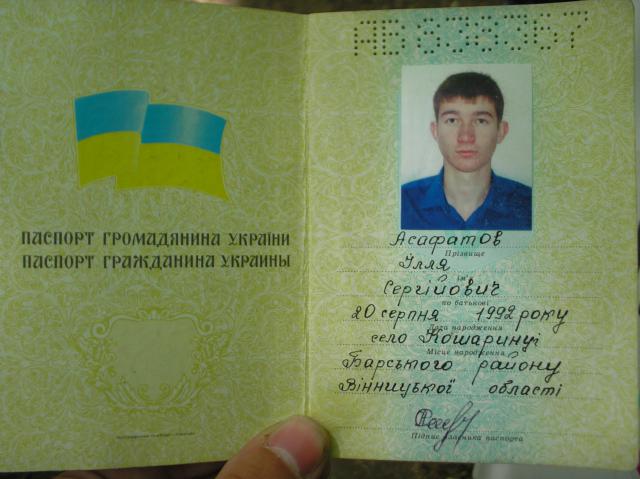 ПАСПОРТ ГРОМАДЯНИНА УКРАЇНИ
ПАСПОРТ ГРАЖДАНИНА УКРАИНЫ
АВ 838367
Асафатов
Прізвище
Ілля
ім'я
Сергійович
по батькові
20 серпня 1992 року
Дата народження
село Кошаринці
Місце народження
Барського району
Вінницької області
Підпис власника паспорта